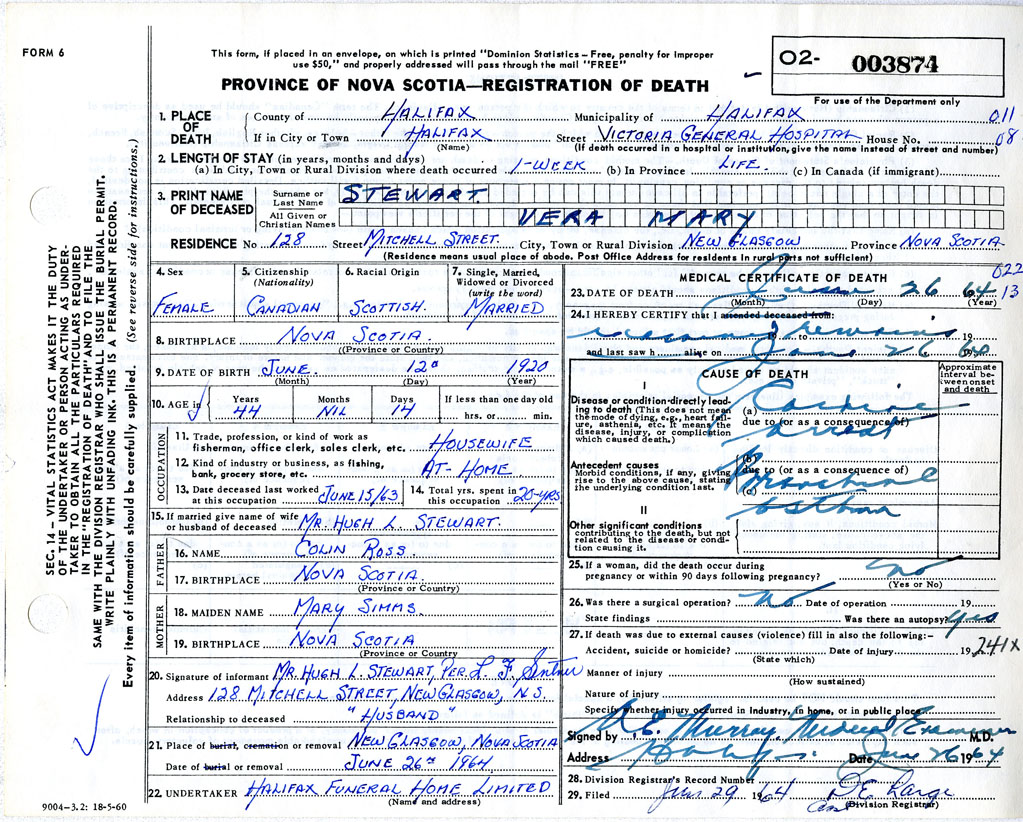 FORM 6
This form, if placed in an envelope, on which is printed "Dominion Statistics – Free, penalty for improper
use $50," and properly addressed will pass through the mail "FREE"
O2- 003874
PROVINCE OF NOVA SCOTIA—REGISTRATION OF DEATH
For use of the Department only
1. PLACE OF DEATH
County of HALIFAX Municipality of HALIFAX 011
If in City or Town HALIFAX Street VICTORIA GENERAL HOSPITAL House No. 08
(Name) (If death occurred in a hospital or institution, give the name instead of street and number)
2. LENGTH OF STAY (in years, months and days)
(a) In City, Town or Rural Division where death occurred 1-WEEK (b) In Province LIFE. (c) In Canada (if immigrant)
3. PRINT NAME OF DECEASED
Surname or Last Name STEWART
All Given or Christian Names VERA MARY
RESIDENCE No 128 Street MITCHELL STREET. City, Town or Rural Division NEW GLASGOW Province NOVA SCOTIA
(Residence means usual place of abode. Post Office Address for residents in rural parts not sufficient)
4. Sex FEMALE
5. Citizenship (Nationality) CANADIAN
6. Racial Origin SCOTTISH.
7. Single, Married, Widowed or Divorced (write the word) MARRIED
8. BIRTHPLACE NOVA SCOTIA.
(Province or Country)
9. DATE OF BIRTH JUNE. 12th 1920
(Month) (Day) (Year)
10. AGE in Years 44 Months NIL Days 14 If less than one day old hrs. or min.
OCCUPATION
11. Trade, profession, or kind of work as fisherman, office clerk, sales clerk, etc. HOUSEWIFE
12. Kind of industry or business, as fishing, bank, grocery store, etc. AT-HOME
13. Date deceased last worked at this occupation JUNE 15/63
14. Total yrs. spent in this occupation 20-YRS
15. If married give name of wife or husband of deceased MR. HUGH L. STEWART.
FATHER
16. NAME COLIN ROSS.
17. BIRTHPLACE NOVA SCOTIA.
(Province or Country)
MOTHER
18. MAIDEN NAME MARY SIMMS.
19. BIRTHPLACE NOVA SCOTIA
(Province or Country
20. Signature of informant MR. HUGH L. STEWART, PER. L. F.
Address 128 MITCHELL STREET, NEW GLASGOW, N.S.
Relationship to deceased "HUSBAND"
21. Place of burial, cremation or removal NEW GLASGOW, NOVA SCOTIA
Date of burial or removal JUNE 26th 1964.
22. UNDERTAKER HALIFAX FUNERAL HOME LIMITED
(Name and address)
9004-3.2: 18-5-60
MEDICAL CERTIFICATE OF DEATH 022
23. DATE OF DEATH June 26 64 13
(Month) (Day) (Year)
24. I HEREBY CERTIFY that I attended deceased from:
remains to 19
and last saw h alive on June 26 64
CAUSE OF DEATH
Approximate interval between onset and death
I
Disease or condition directly leading to death (This does not mean the mode of dying, e.g., heart failure, asthenia, etc. It means the disease, injury, or complication which caused death.)
(a) Cardiac
due to (or as a consequence of)
arrest
Antecedent causes
Morbid conditions, if any, giving rise to the above cause, stating the underlying condition last.
(b)
due to (or as a consequence of)
(c) Bronchial
asthma
II
Other significant conditions
contributing to the death, but not related to the disease or condition causing it.
25. If a woman, did the death occur during pregnancy or within 90 days following pregnancy? no
(Yes or No)
26. Was there a surgical operation? no Date of operation 19
State findings Was there an autopsy? yes
27. If death was due to external causes (violence) fill in also the following:–
Accident, suicide or homicide? Date of injury 19 241X
(State which)
Manner of injury
(How sustained)
Nature of injury
Specify whether injury occurred in industry, in home, or in public place
Signed by E. Murray Medical Examiner M.D.
Address Date June 26 1964
28. Division Registrar's Record Number
29. Filed Jun 29 1964
(Division Registrar)
SEC. 14 – VITAL STATISTICS ACT MAKES IT THE DUTY
OF THE UNDERTAKER OR PERSON ACTING AS UNDER-
TAKER TO OBTAIN ALL THE PARTICULARS REQUIRED
IN THE "REGISTRATION OF DEATH" AND TO FILE THE
SAME WITH THE DIVISION REGISTRAR WHO SHALL ISSUE THE BURIAL PERMIT.
WRITE PLAINLY WITH UNFADING INK. THIS IS A PERMANENT RECORD.
Every item of information should be carefully supplied. (See reverse side for instructions.)